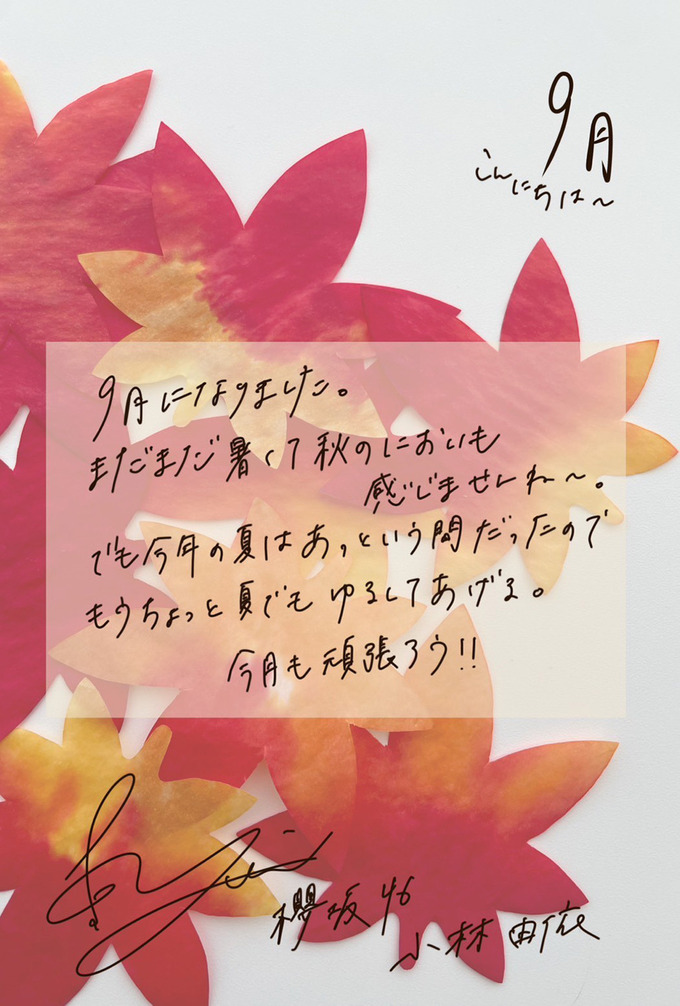 9月
こんにちは～
9月になりました。
まだまだ暑くて秋のにおいも
感じませんね～。
でも今年の夏はあっという間だったので
もうちょっと夏でもゆるしてあげる。
今月も頑張ろう!!
櫻坂46
小林由依